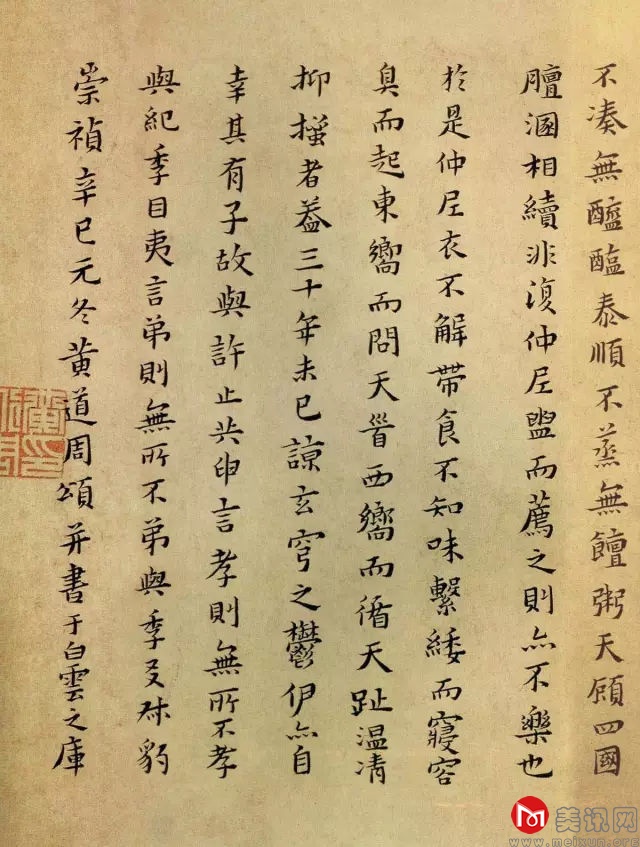 不凑無醯醢泰順不蒸無饘粥天顾四國
膻溷相續非復仲尼盥而薦之則亦不樂也
於是仲尼衣不解帶食不知味繫緌而寢容
臭而起東嚮而問天眥西嚮而循天趾温凊
抑搔者葢三十年未已諒玄穹之鬱伊亦自
幸其有子故與許止共申言孝則無所不孝
與紀季目夷言弟則無所不弟與季叔豹
崇禎辛巳元冬黄道周頌并書于白雲之庫
美讯网
www.meixun.org